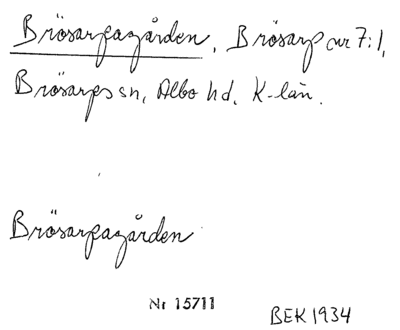 Brösarpagården, Brösarp nr 7:1,
Brösarps sn, Albo hd, K-län.
Brösarpagården
Nr 15711
BEK 1934